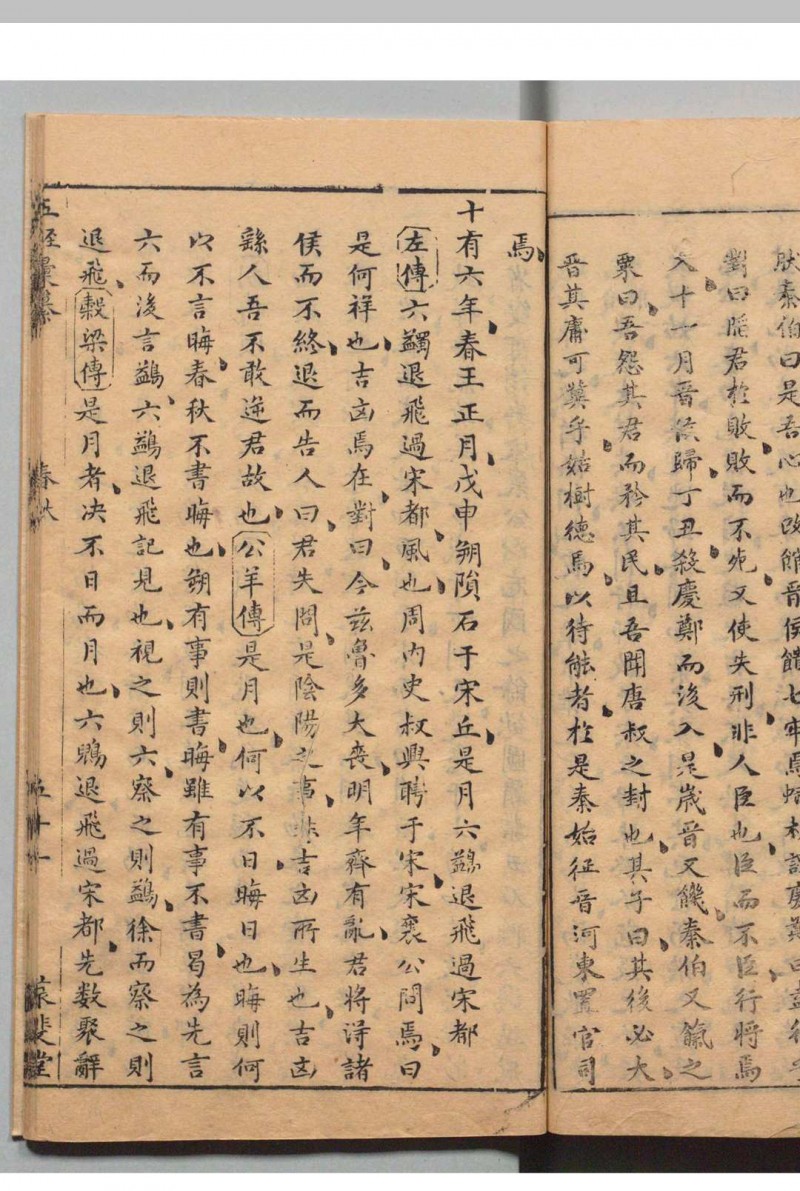 馱秦伯曰是吾心也改館晉侯饋七牢馬蛾析謂慶鄭曰盍行乎
對曰陷君於敗敗而不死又使失刑非人臣也臣而不臣行將焉
入十一月晉侯歸丁丑殺慶鄭而後入是歲晉又饑秦伯又餼之
粟曰吾怨其君而矜其民且吾聞唐叔之封也其子曰其後必大
晉其庸可冀乎姑樹德焉以待能者於是秦始征晉河東置官司
焉
十有六年春王正月戊申朔隕石于宋丘是月六鷁退飛過宋都
左傳六鷁退飛過宋都風也周内史叔興聘于宋宋襄公問焉曰
是何祥也吉凶焉在對曰今茲魯多大喪明年齊有亂君將淂諸
侯而不終退而告人曰君失問是陰陽之事非吉凶所生也吉凶
繇人吾不敢逆君故也公羊傳是月也何以不日晦日也晦則何
以不言晦春秋不書晦也朔有事則書晦雖有事不書曷為先言
六而後言鷁六鷁退飛記見也視之則六察之則鷁徐而察之則
退飛穀梁傳是月者决不日而月也六鶂退飛過宋都先数聚辭
五經彙纂 春秋 五十一